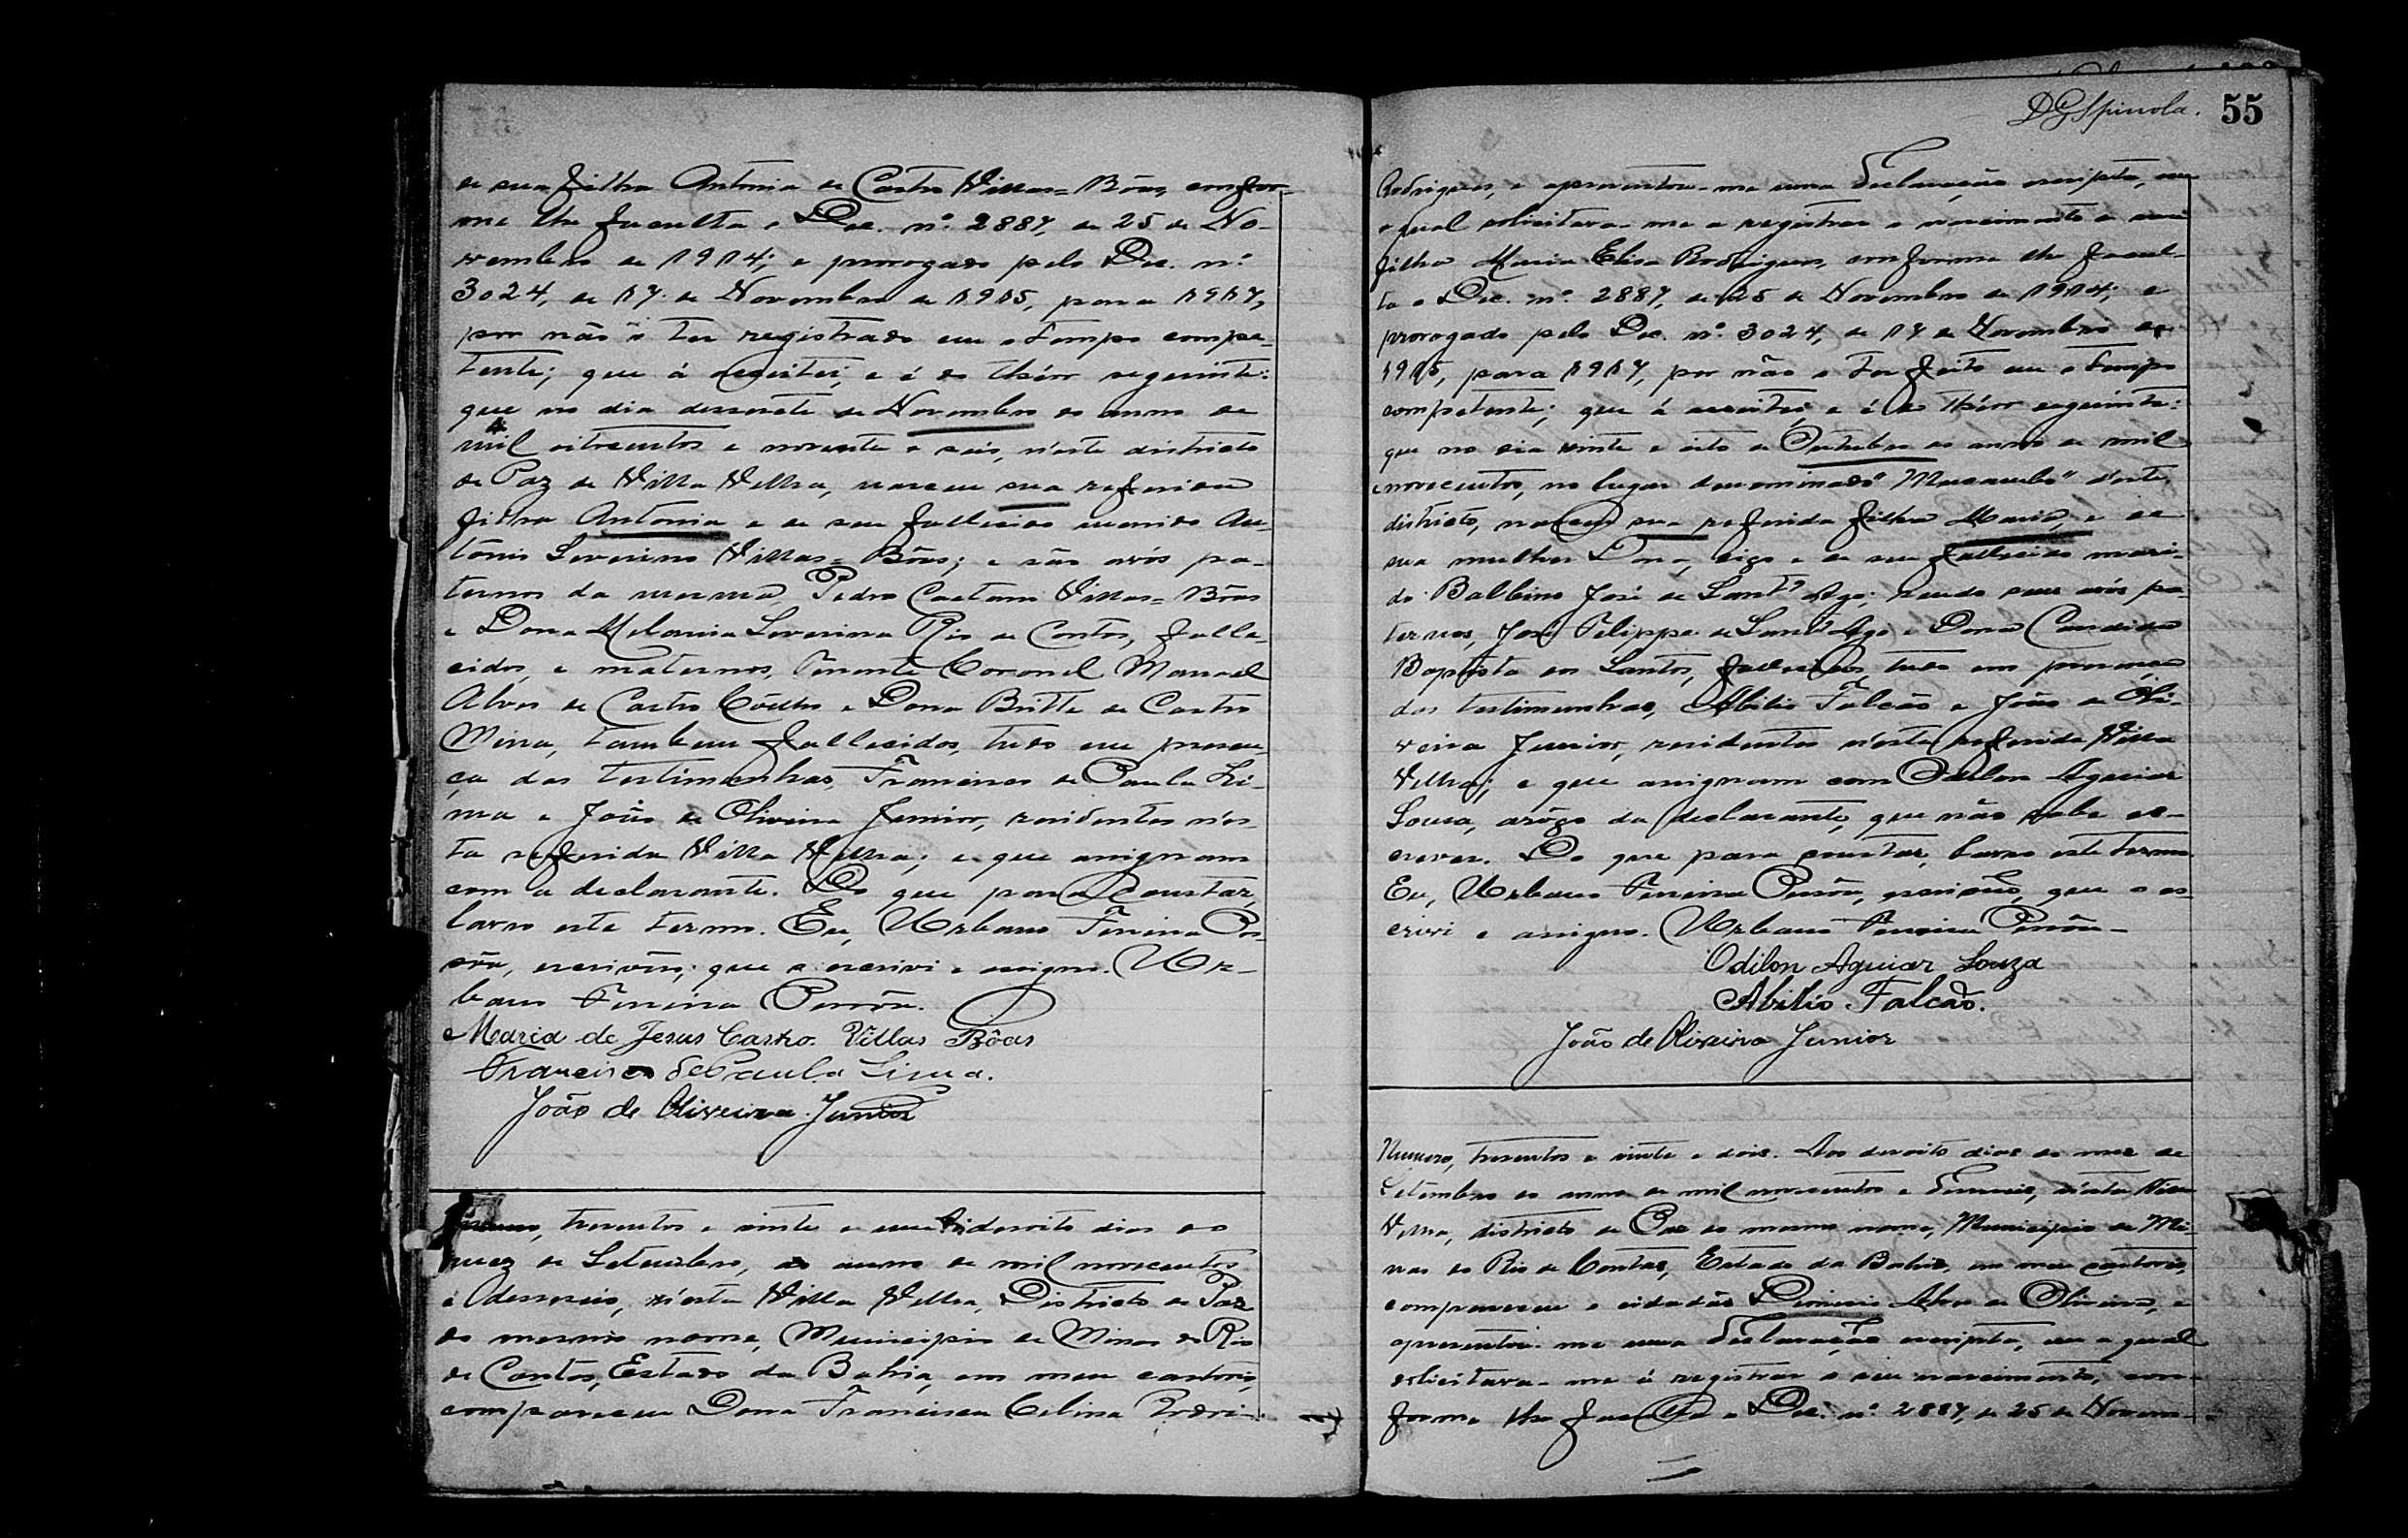 de sua filha Antonia de Castro Villas=Bôas, confor-
me lhe faculta o Dec. nº 2887, de 25 de No-
vembro de 1914; e prorogado pelo Dec. nº
3024, de 17 de Novembro de 1915, para 1917,
por não o ter registrado em o tempo compe-
tente; que á acceitei, e é do theôr seguinte:
que no dia desesete de Novembro do anno de
mil oitocentos e noventa e seis, n'este districto
de Paz de Villa Velha, nasceu sua referida
filha Antonia e de seu fallecido marido An-
tônio Severino Villas=Bôas; e são avós pa-
ternos da mesma, Pedro Caetano Villas=Bôas
e Dona Melania Severina Rio de Contas, falle-
cidos, e maternos, Tenente Coronel Manoel
Alves de Castro Coêlho e Dona Britte de Castro
Meira, tambem fallecidos, tudo em presen-
ça das testimunhas, Francisco de Paula Li-
ma e João de Oliveira Junior, residentes n'es-
ta referida Villa Velha; e que assignam
com a declarante. Do que para constar,
lavro este termo. Eu, Urbano Ferreira Pes-
sôa, escrivão, que o escrivi e assigno. Ur-
bano Ferreira Pessôa.
Maria de Jesus Castro Villas Bôas
Francisco de Paula Lima.
João de Oliveira Junior
Numero, tresentos e vinte e um. Aos desoito dias do
mez de Setembro, do anno de mil novecentos
e desesseis, n'esta Villa Velha, Districto de Paz
do mesmo nome, Municipio de Minas do Rio
de Contas, Estado da Bahia, em meu cartorio,
compareceu Dona Francisca Celina Rodri-
DGSpinola. 55
Rodrigues, e apresentou-me uma declaração escripta, em
a qual solicitava-me a registrar o nascimento de sua
filha Maria Elisa Rodrigues, conforme lhe facul-
ta o Dec. nº 2887, de 25 de Novembro de 1914; e
prorogado pelo Dec. nº 3024, de 17 de Novembro de
1915, para 1917, por não o ter feito em o tempo
competente; que á acceitei, e é do theôr seguinte:
que no dia vinte e oito de Outubro do anno de mil
novecentos, no lugar denominado "Mucambo" d'este
districto, nasceu sua referida filha Maria, e de
sua mulher Dona, digo e de seu fallecido mari-
do Balbino José de Sant'Ago; sendo seus avós pa-
ternos, José Felippe de Sant'Ago e Dona Candida
Baptista dos Santos, fallecidos, tudo em presença
das testimunhas, Abilio Falcão e João de Oli-
veira Junior, residentes n'esta referida Villa
Velha; e que assignam com Odilon Aguiar
Souza, arôgo da declarante, que não sabe es-
crever. Do que para constar, lavro este termo.
Eu, Urbano Ferreira Pessôa, escrivão, que o es-
crivi e assigno. Urbano Ferreira Pessôa
Odilon Aguiar Souza
Abilio Falcão.
João de Oliveira Junior
Numero, tresentos e vinte e dois. Aos desoito dias do mez de
Setembro do anno de mil novecentos e desesseis, n'esta Villa
Velha, districto de Paz do mesmo nome, Municipio de Mi-
nas do Rio de Contas, Estado da Bahia, em meu cartorio,
compareceu o cidadão Alves de Oliveira, e
apresentou-me uma declaração escripta, em a qual
solicitava-me á registrar o seu nascimento, con-
forme lhe faculta o Dec. nº 2887, de 25 de Novem-